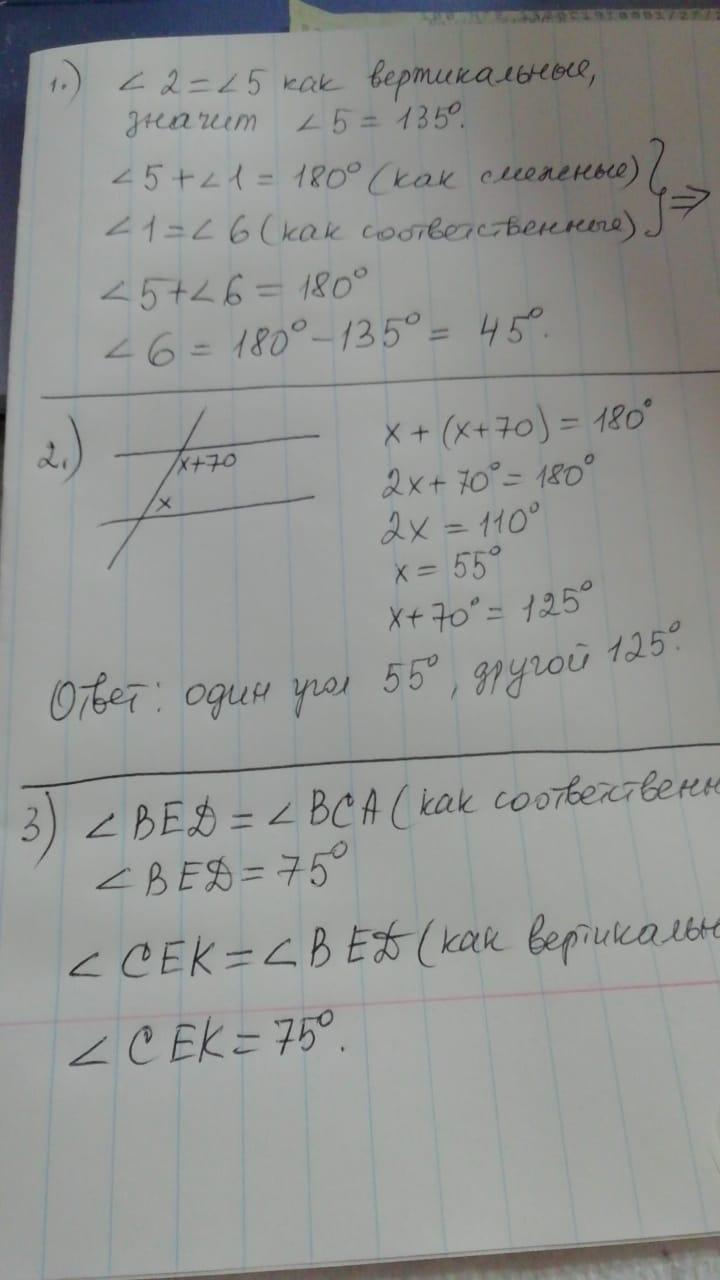 1.) ∠2=∠5 как вертикальные,
значит ∠5 = 135°.
∠5+∠1 = 180° (как смежные)
∠1=∠6 (как соответственные) } ⇒
∠5+∠6 = 180°
∠6 = 180°-135° = 45°.
2.)
x+70
x
x + (x+70) = 180°
2x + 70° = 180°
2x = 110°
x = 55°
x+70° = 125°
Ответ: один угол 55°, другой 125°.
3) ∠BED = ∠BCA (как соответственн
∠BED = 75°
∠CEK = ∠BED (как вертикальн
∠CEK = 75°.